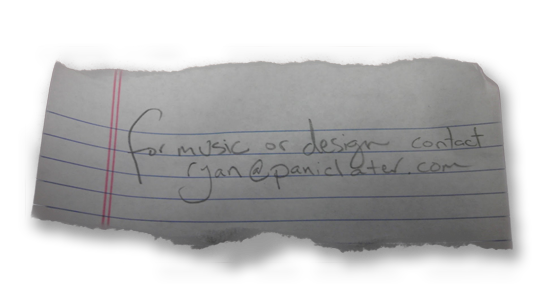 for music or design contact
ryan@paniclater.com